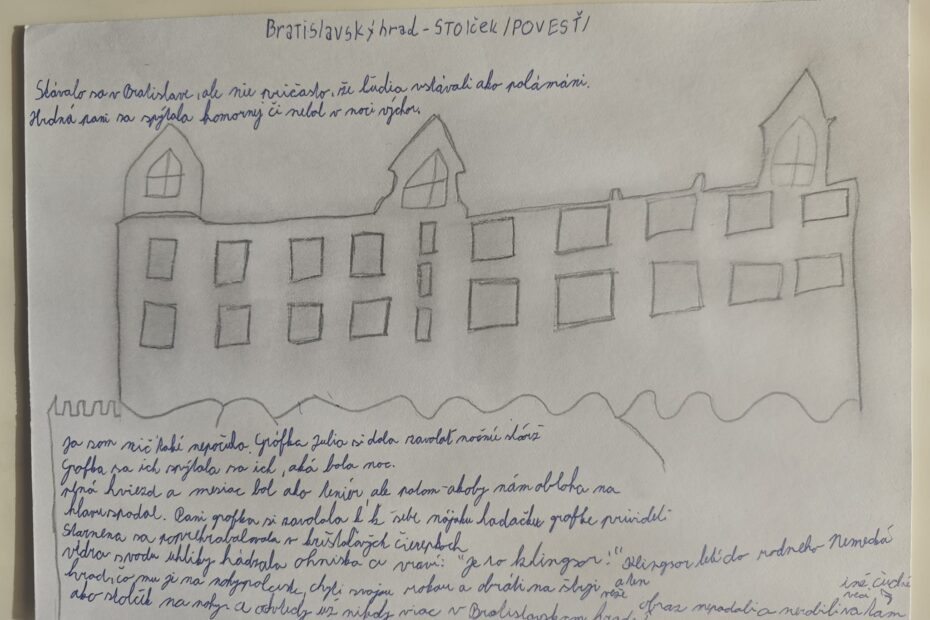 Bratislavský hrad - STOlček /POVESŤ/
Stávalo sa v Bratislave, ale nie pričasto, že ľudia vstávali ako polámáni.
Hrdná pani sa spýtala komornej či nebol v noci výchor.
Ja som nič také nepočula. Grófka Julia si dala zavolať nočnú stráž
Grofka sa ich spýtala sa ich, aká bola noc.
plná hviezd a mesiac bol ako lenivr, ale potom akoby nám obloha na
hlavu spadol. Pani grofka si zavolala k sebe nájaku ladačku grofke
Starnena sa v krištáľových čierepkoch
vedra uhliky hádzala ohniska a vraví: "Je to klingsor!" Klingsor letí do rodného Nemecka
hradi čo mu je na chyti svojou rokou a obráti na štyri veže a ten
ako stolček na nohy a odvtedy už nikdy viac v Bratislavskom hrade
obraz nepadali a nerobili sa tam
iné čudné
veci